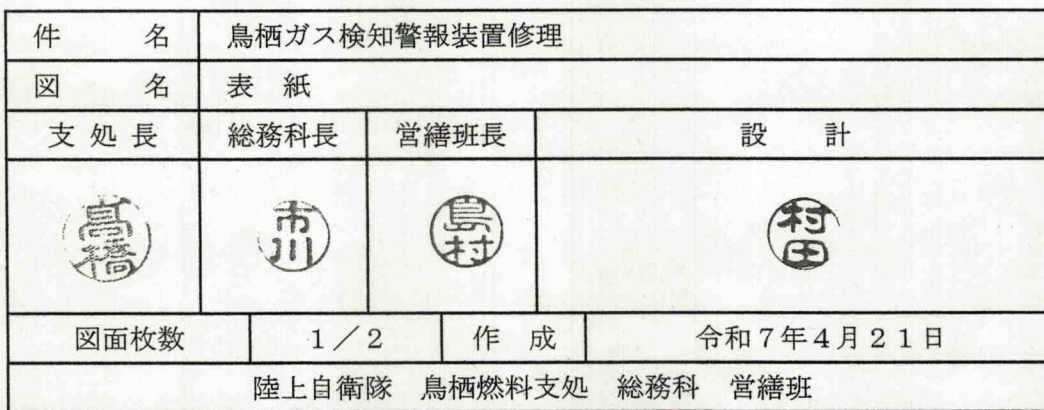 件　　名　鳥栖ガス検知警報装置修理
図　　名　表　紙
支 処 長　総務科長　営繕班長　設　　計
高橋　市川　島村　村田
図面枚数　１／２　作　成　令和７年４月２１日
陸上自衛隊　鳥栖燃料支処　総務科　営繕班